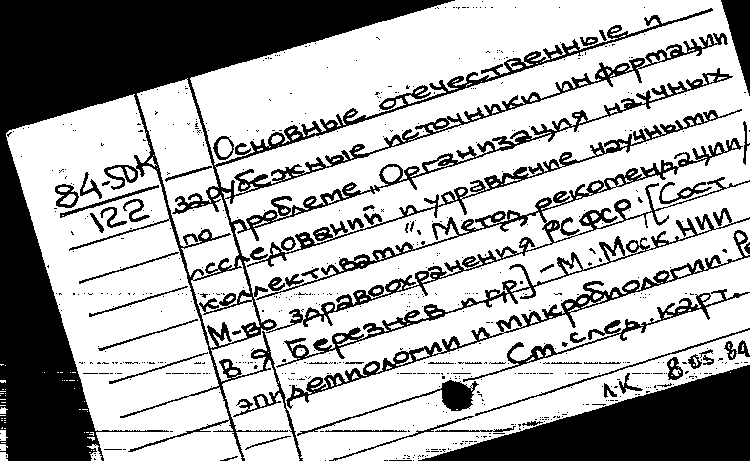 84-5DK
122
Основные отечественные и
зарубежные источники информации
по проблеме „Организация научных
исследований и управление научными
коллективами": Метод. рекомендации/
М-во здравоохранения РСФСР; [Сост.
В.Я. Березнев и др.]. - М.: Моск. НИИ
эпидемиологии и микробиологии:
См. след. карт.
ЛК 8.05.84